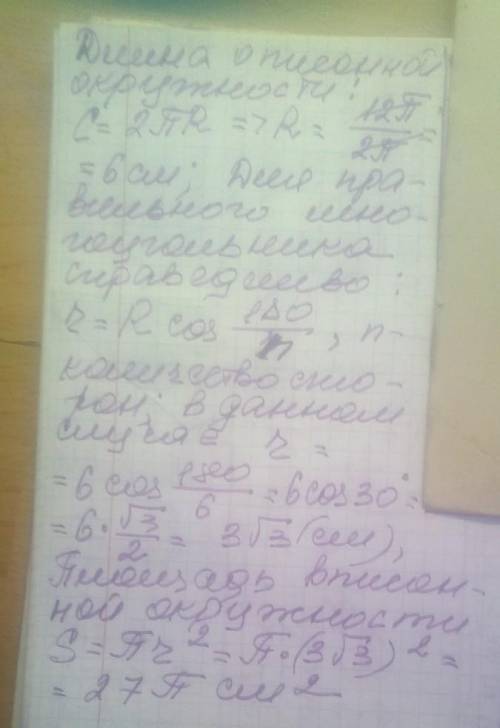 Длина описанной
окружности:
C = 2πR => R = 12π/2π =
= 6 см; Для пра-
вильного мно-
гоугольника
справедливо:
r = R cos 180/n, n -
количество сто-
рон; в данном
случае r =
= 6 cos 180/6 = 6 cos 30° =
= 6 · √3/2 = 3√3 (см),
Площадь вписан-
ной окружности
S = πr² = π · (3√3)² =
= 27π см²